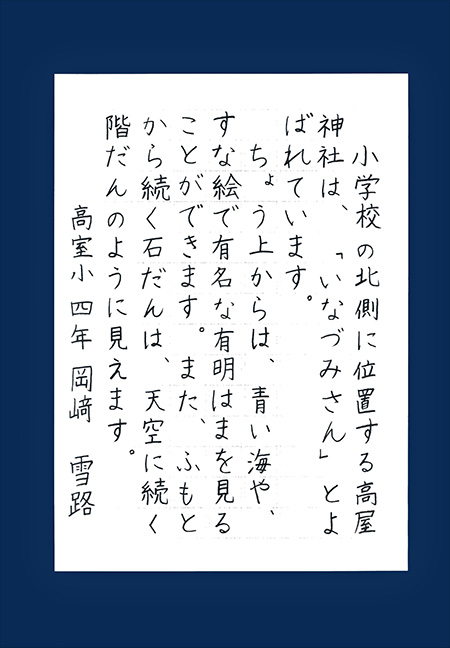 小学校の北側に位置する高屋
神社は、「いなづみさん」とよ
ばれています。
ちょう上からは、青い海や、
すな絵で有名な有明はまを見る
ことができます。また、ふもと
から続く石だんは、天空に続く
階だんのように見えます。
高室小 四年 岡﨑 雪路